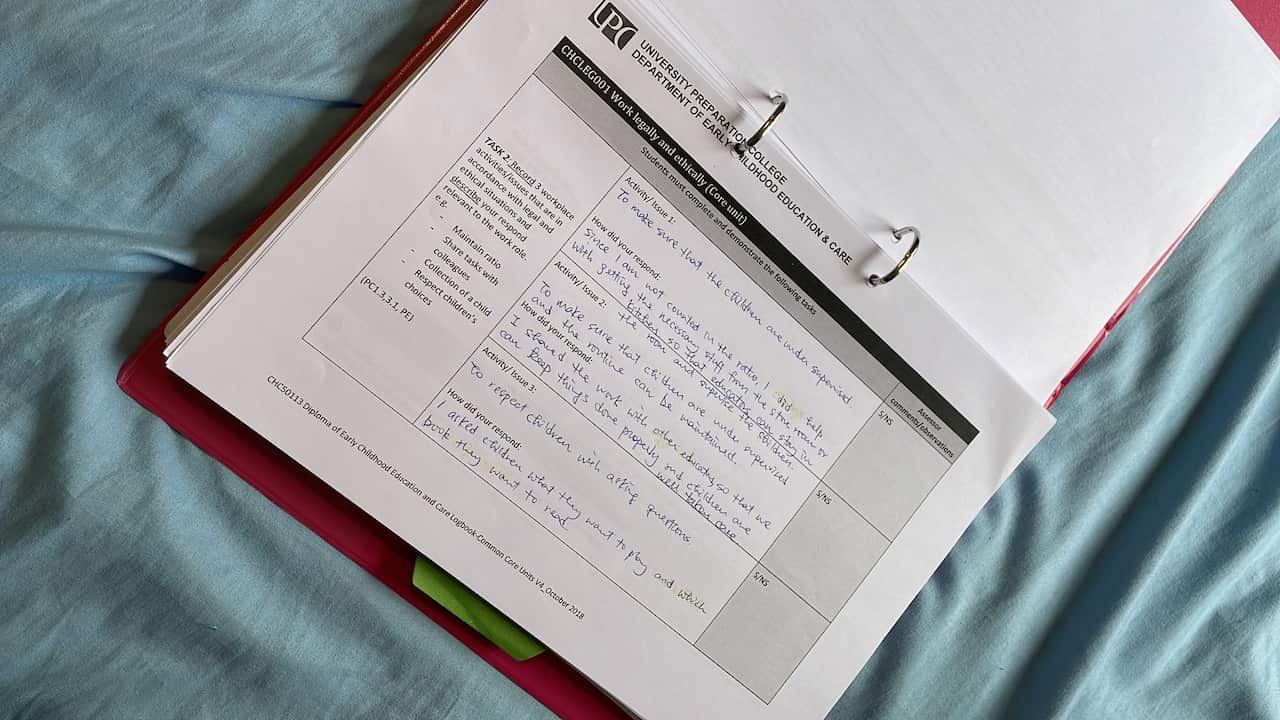 UPC
UNIVERSITY PREPARATION COLLEGE
DEPARTMENT OF EARLY CHILDHOOD EDUCATION & CARE
CHCLEG001 Work legally and ethically (Core unit)
Students must complete and demonstrate the following tasks
Assessor
comments/observations
TASK 2 Record 3 workplace
activities/issues that are in
accordance with legal and
ethical situations and
describe your respond
relevant to the work role.
e.g
- Maintain ratio
- Share tasks with
colleagues
- Collection of a child
- Respect children's
choices
(PC1.3,3.1, PE)
Activity/ Issue 1:
To make sure that the children are under supervised.
How did your respond:
since I am not in the ratio, I help
with getting the necessary stuff from the store room or
kitchen so that educators can stay in
the room and supervise the children.
S/NS
Activity/ Issue 2:
To make sure that children are under supervised
and the routine can be maintained.
How did your respond:
I shared the work with other so that we
can keep things done properly and children are
well taken care
S/NS
Activity/ Issue 3:
To respect children with asking questions
How did your respond:
I asked children what they want to play and which
book they want to read
S/NS
CHC50113 Diploma of Early Childhood Education and Care Logbook-Common Core Units v4_October 2018